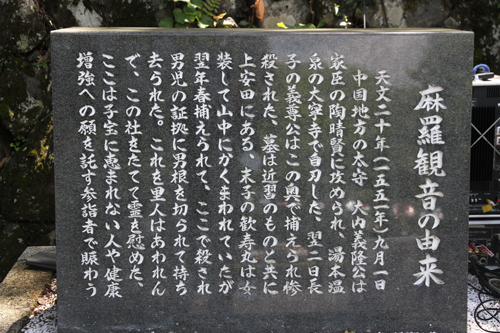 麻羅観音の由来
天文二十年(一五五一年)九月一日
中国地方の太守 大内義隆公は
家臣の陶晴賢に攻められ、湯本温
泉の大寧寺で自刃した、翌二日長
子の義尊公はこの奥で捕えられ惨
殺された、墓は近習のものと共に
上安田にある、末子の歓寿丸は女
装して山中にかくまわれていたが
翌年春捕えられて、ここで殺され
男児の証拠に男根を切られて持ち
去られた。これを里人はあわれん
で、この社をたてて霊を慰めた、
ここは子宝に恵まれない人や健康
増強への願を託す参詣者で賑わう